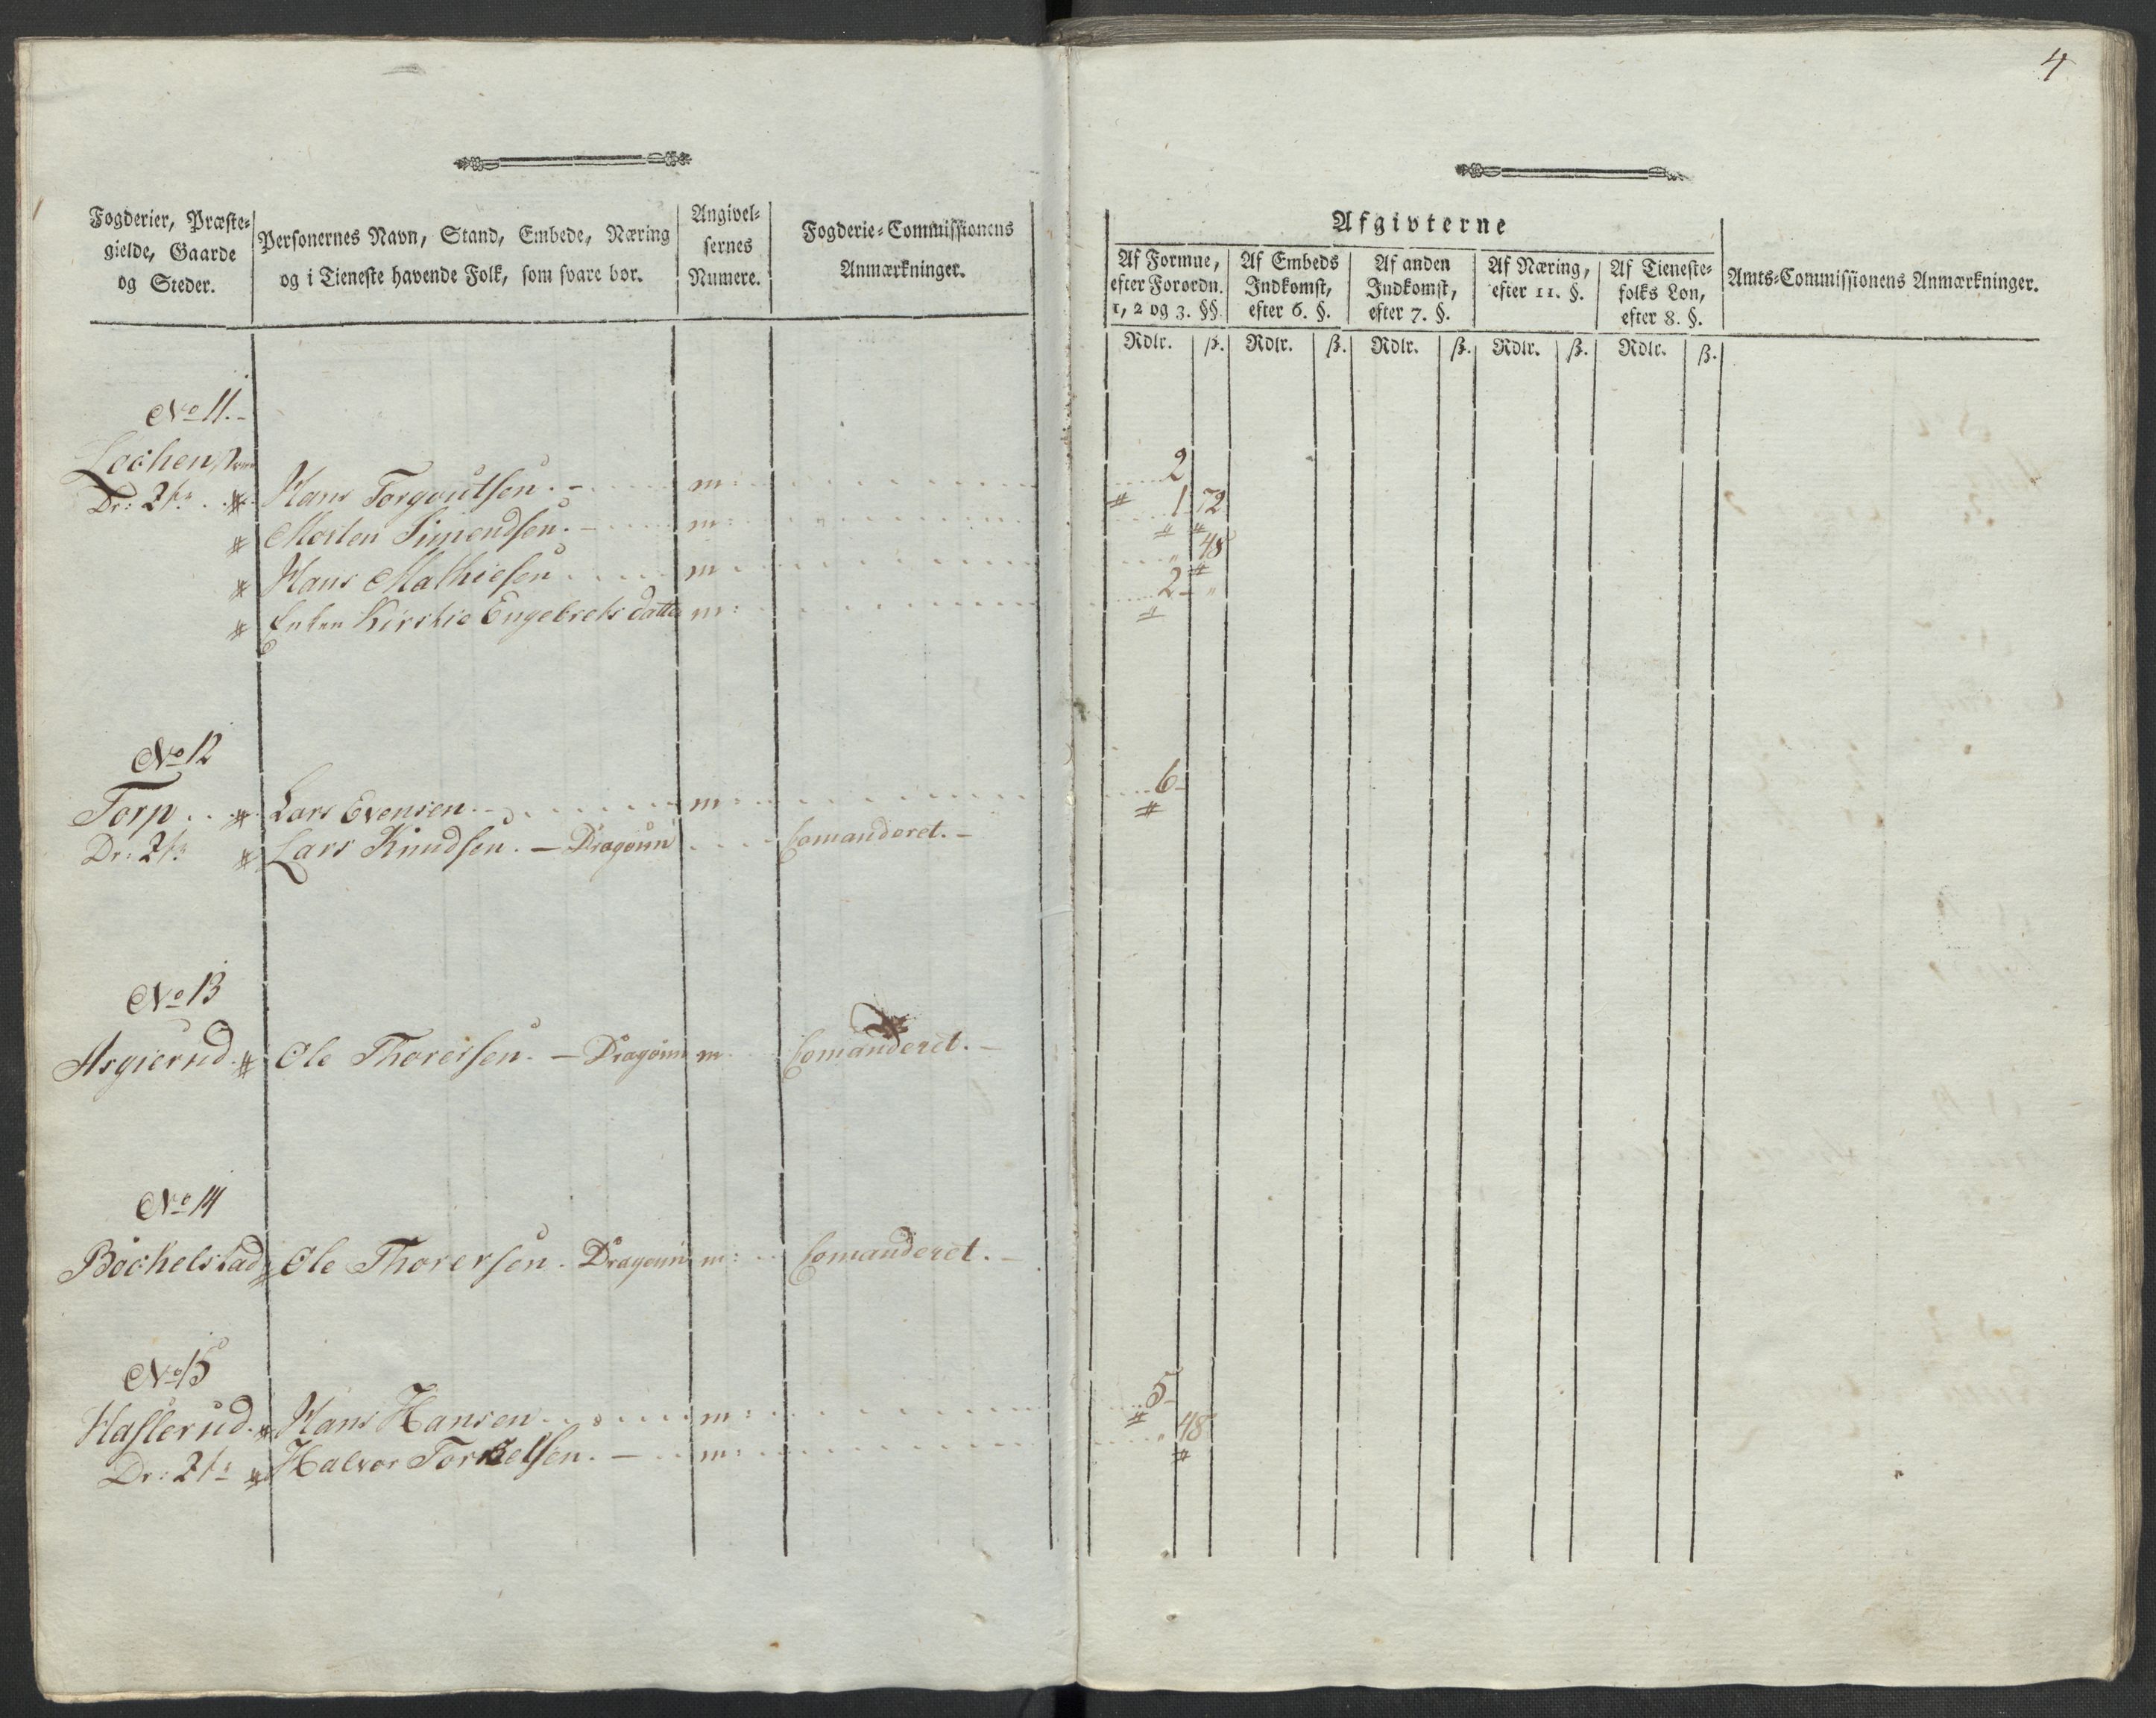 4
Fogderier, Præste-
gielde, Gaarde
og Steder.
Personernes Navn, Stand, Embede, Næring
og i Tieneste havende Folk, som svare bør.
Angivel-
sernes
Numere.
Fogderie-Commissionens
Anmærkninger.
Afgivterne
Af Formue,
efter Forordn.
1, 2 og 3. §§.
Af Embeds
Indkomst,
efter 6. §.
Af anden
Indkomst,
efter 7. §.
Af Næring,
efter 11. §.
Af Tieneste-
folks Løn,
efter 8. §.
Amts-Commissionens Anmærkninger.
Rdlr. ß. Rdlr. ß. Rdlr. ß. Rdlr. ß. Rdlr. ß.
No 11.
Lochen
Hans Torgoutsen m: 2
Morten Simendsen m: 1 72
Hans Mathiesen m 48
Enken Kirstie Engebrets datter m: 2
No 12
Torp Lars Evensen m: 6
Lars Knudsen. Dragoun Comanderet.
No 13
Asgierud Ole Thorersen. Dragoun m Comanderet.
No 14
Böchelstad Ole Thorersen. Dragoun m: Comanderet.
No 15
Haslerud Hans Hansen m: 5
Halvor Torkelsen. m: 48